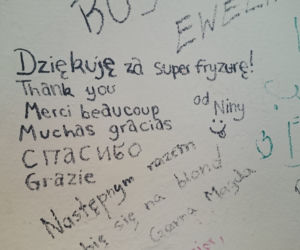 BUS
EWEL
Dziękuję za super fryzurę!
Thank you
Merci beaucoup
od Niny
Muchas gracias
СПАСИБО
Grazie
Następnym razem
się na blond!
Czarna Magda